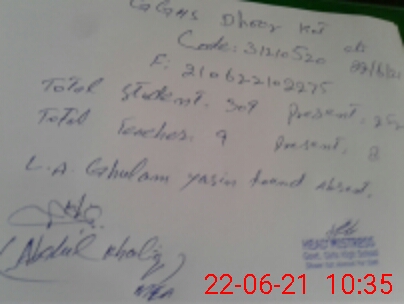 GGHS Dhoor Kot
Code: 31210520 dt: 22/6/21
F: 210622102275
Total Student. 309 present. 252
Total Teacher. 9 present. 8
L.A. Ghulam yasin found absent.
(Abdul Khaliq)
HEADMISTRESS
Govt. Girls High School
22-06-21 10:35